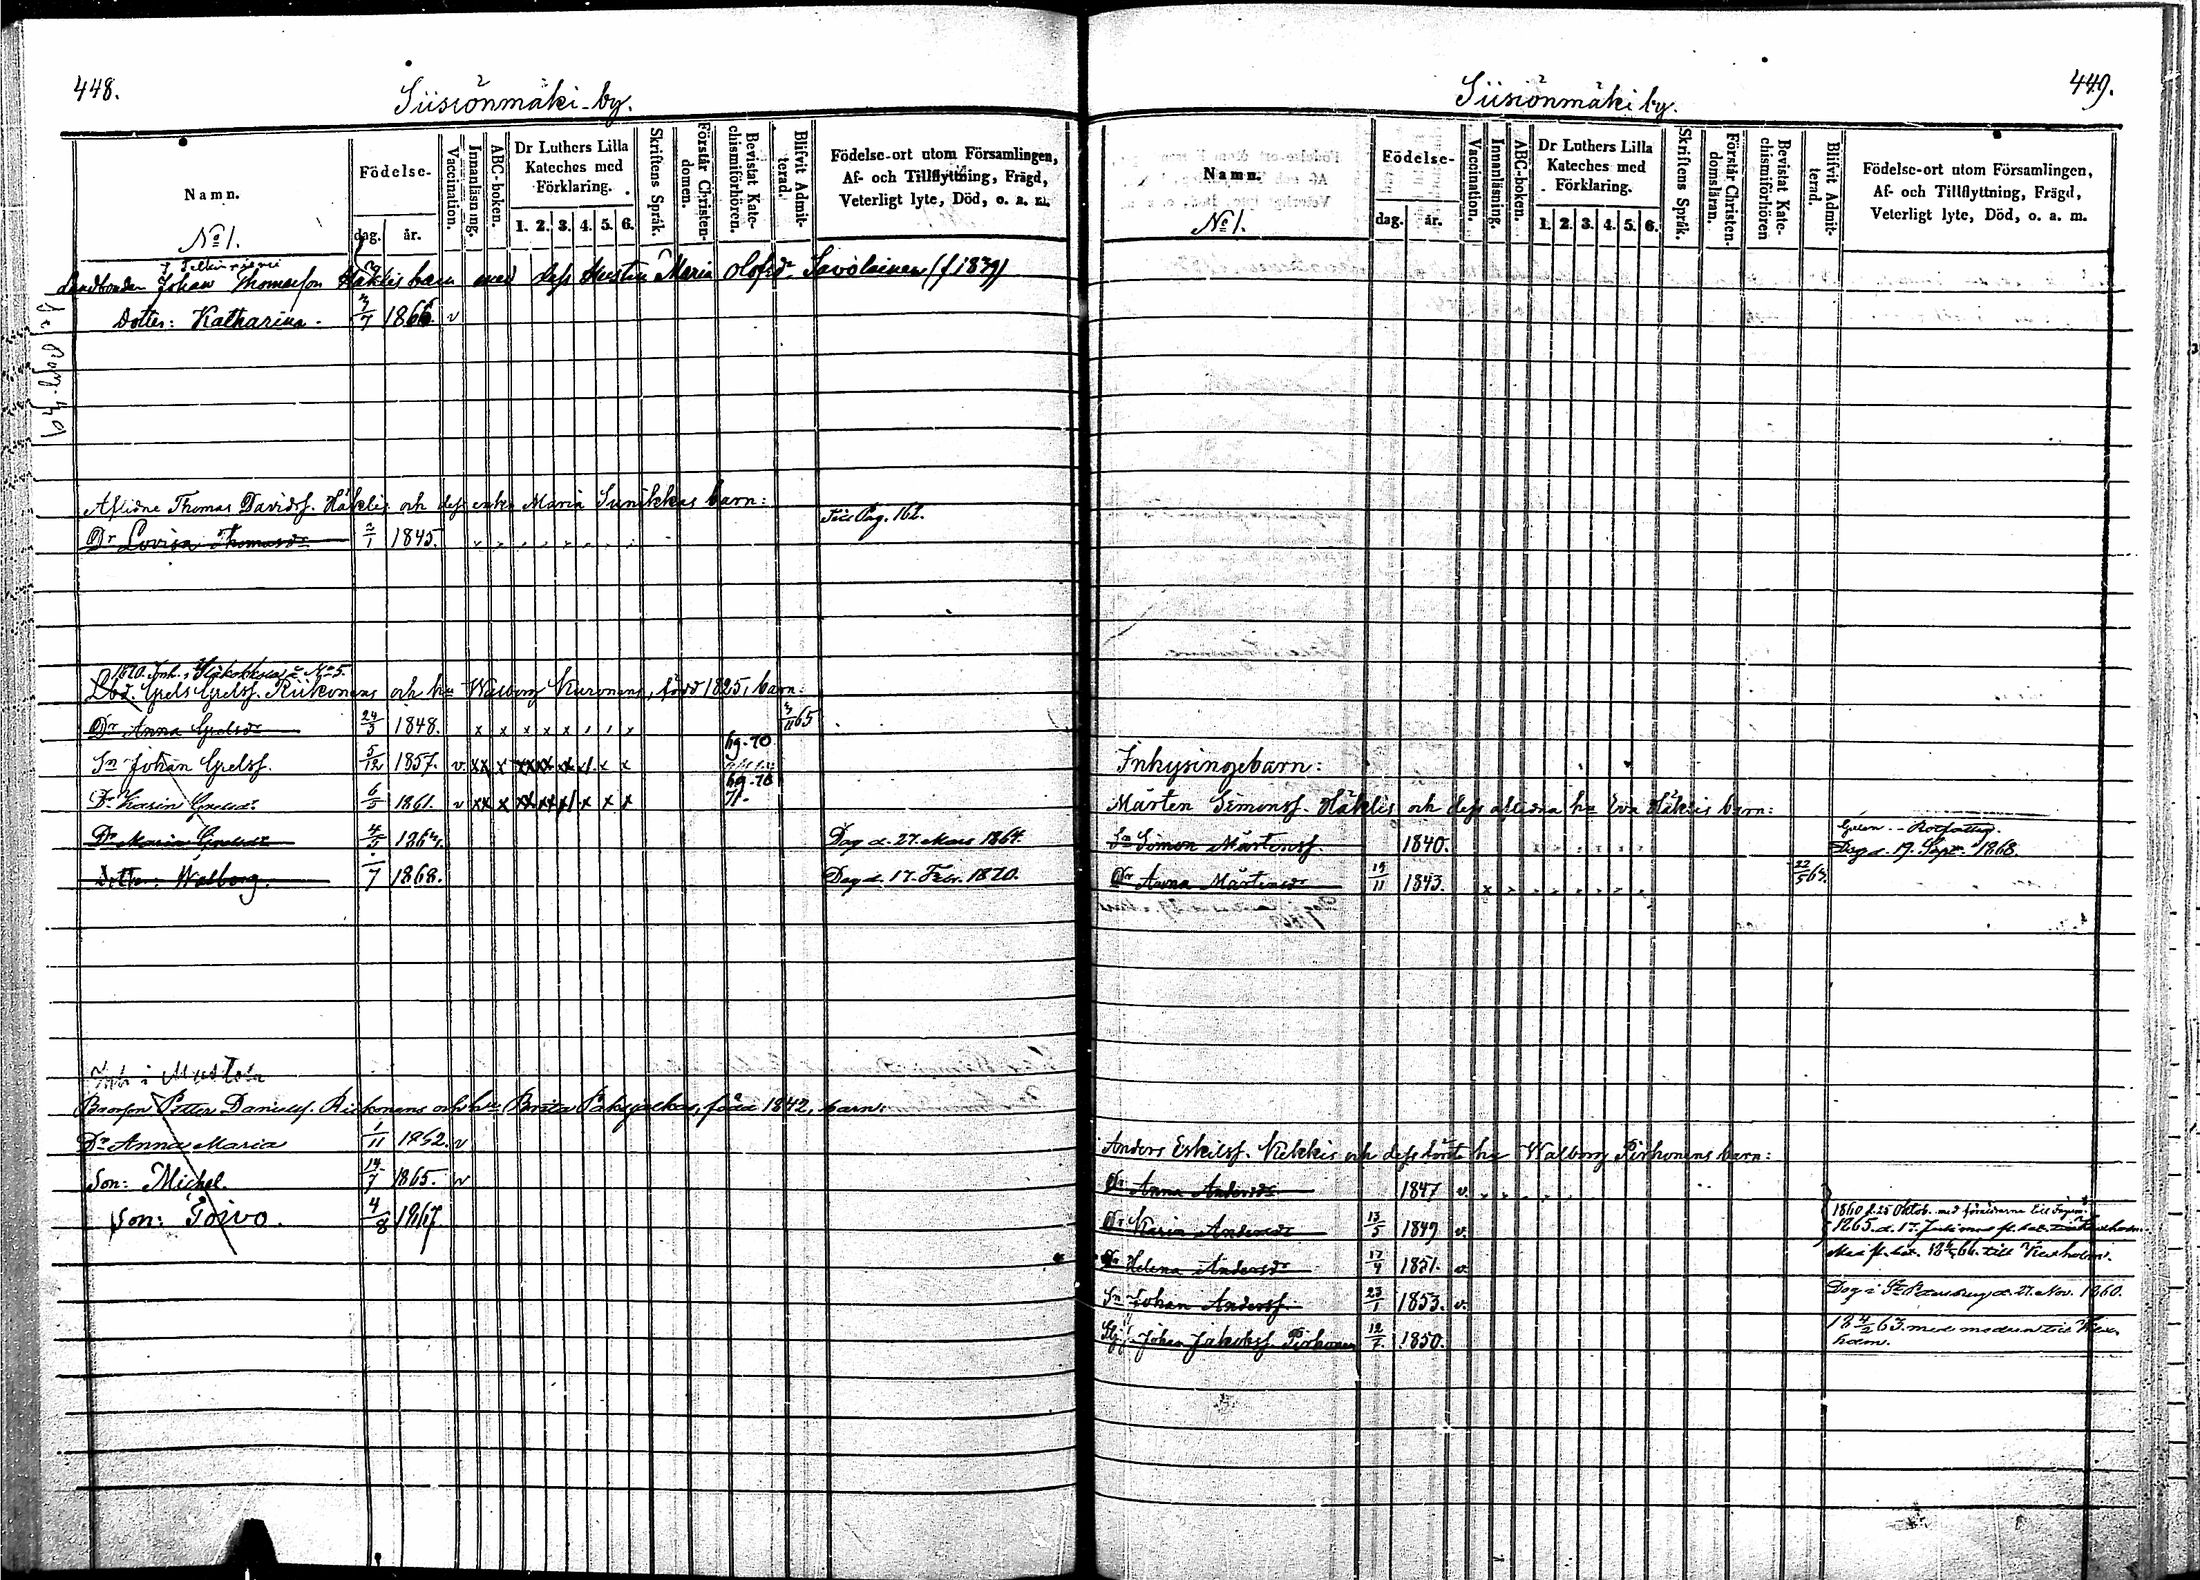 448.
Siisiönmäki by.
Namn.
Födelse-
dag.
år.
Vaccination.
Innanläsning.
ABC-boken.
Dr Luthers Lilla
Kateches med
Förklaring.
1. 2. 3. 4. 5. 6.
Skriftens Språk.
Förstår Christen-
domen.
Bevistat Kate-
chismiförhören.
Blifvit Admit-
terad.
Födelse-ort utom Församlingen,
Af- och Tillflyttning, Frägd,
Veterligt lyte, Död, o. a. m.
No 1.
Landbonden Johan Thomasson Häklis barn med dess hustru Maria Olofsdr Savolainen (f 1839)
Dotter: Katharina. 3/7 1866 v
Aflidne Thomas Davidsf. Häklis och dess enka Maria Sunikkas barn:
Dr Lovisa Thomasdr 2/1 1845. Sid. Pag. 162.
Lbd. Grels Grelsf. Riikonens och hu Walborg Kuronens, född 1825, barn:
Dr Anna Grelsdr 24/3 1848. x x x x x
Sn Johan Grelsf. 5/12 1857. v. hg. 70
Dr Karin Grelsdr 6/5 1861. v hg. 70
71.
Dr Maria Grelsdr 4/5 1863. Dog d. 27. Mars 1864.
Dotter: Walborg. /7 1868. Dog d. 17. Febr. 1870.
Inh i Mustola
Petter Danielsf. Riikonens och hu Brita född 1842, barn:
Dr Anna Maria 1/11 1862. v
Son: Michel. 14/7 1865. v
Son: Toivo. 4/8 1867
449.
Siisiönmäki by.
Namn.
Födelse-
dag.
år.
Vaccination.
Innanläsning.
ABC-boken.
Dr Luthers Lilla
Kateches med
Förklaring.
1. 2. 3. 4. 5. 6.
Skriftens Språk.
Förstår Christen-
domsläran.
Bevistat Kate-
chismiförhören
Blifvit Admit-
terad.
Födelse-ort utom Församlingen,
Af- och Tillflyttning, Frägd,
Veterligt lyte, Död, o. a. m.
No 1.
Inhysingebarn:
Mårten Simonsf. Häklis och dess aflidna hu Eva Häklis barn:
Sn Simon Mårtensf. 1840. Dog d. 19. Sept. 1868.
Dr Anna Mårtensdr 19/11 1843. x
Anders Eskilsf. Kekkis och dess hu Walborg Pirhonens barn:
Dr Anna Andersdr 1847 v.
Dr Karin Andersdr 13/5 1849 v. 1860 d. 25 Oktob. med föräldrarne till
Dr Helena Andersdr 17/4 1851. v. till Kexholm.
Sn Johan Andersf. 23/1 1853. v. Dog i St Petersburg d. 27. Nov. 1860.
Johan Jakobsf. Pirhonen 12/7 1850. med modren till Kex-
holm.